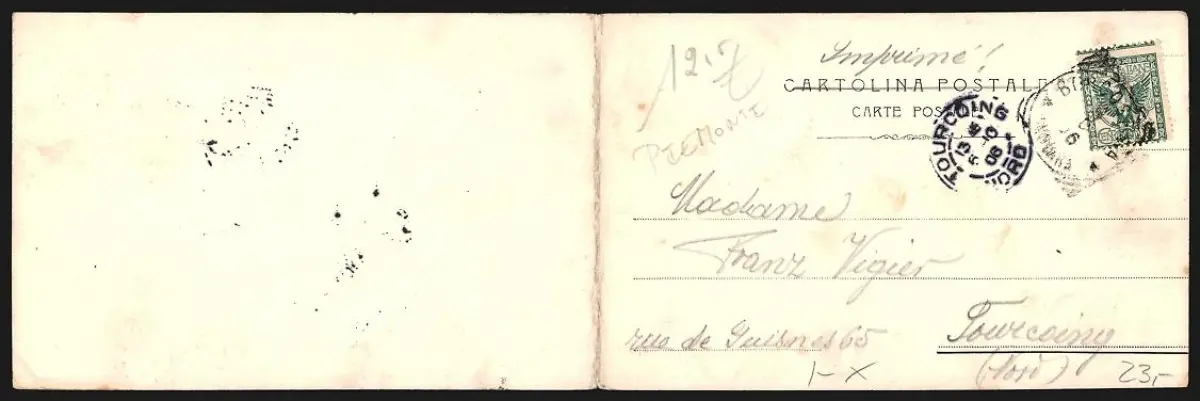 12.
Imprimé!
CARTOLINA POSTALE
CARTE POS
PIEMONTE
TOURCOING
13
10
06
NORD
Madame
Franz Vigier
rue de Guisnes 65
Tourcoing
(Nord)
1-X
23,-